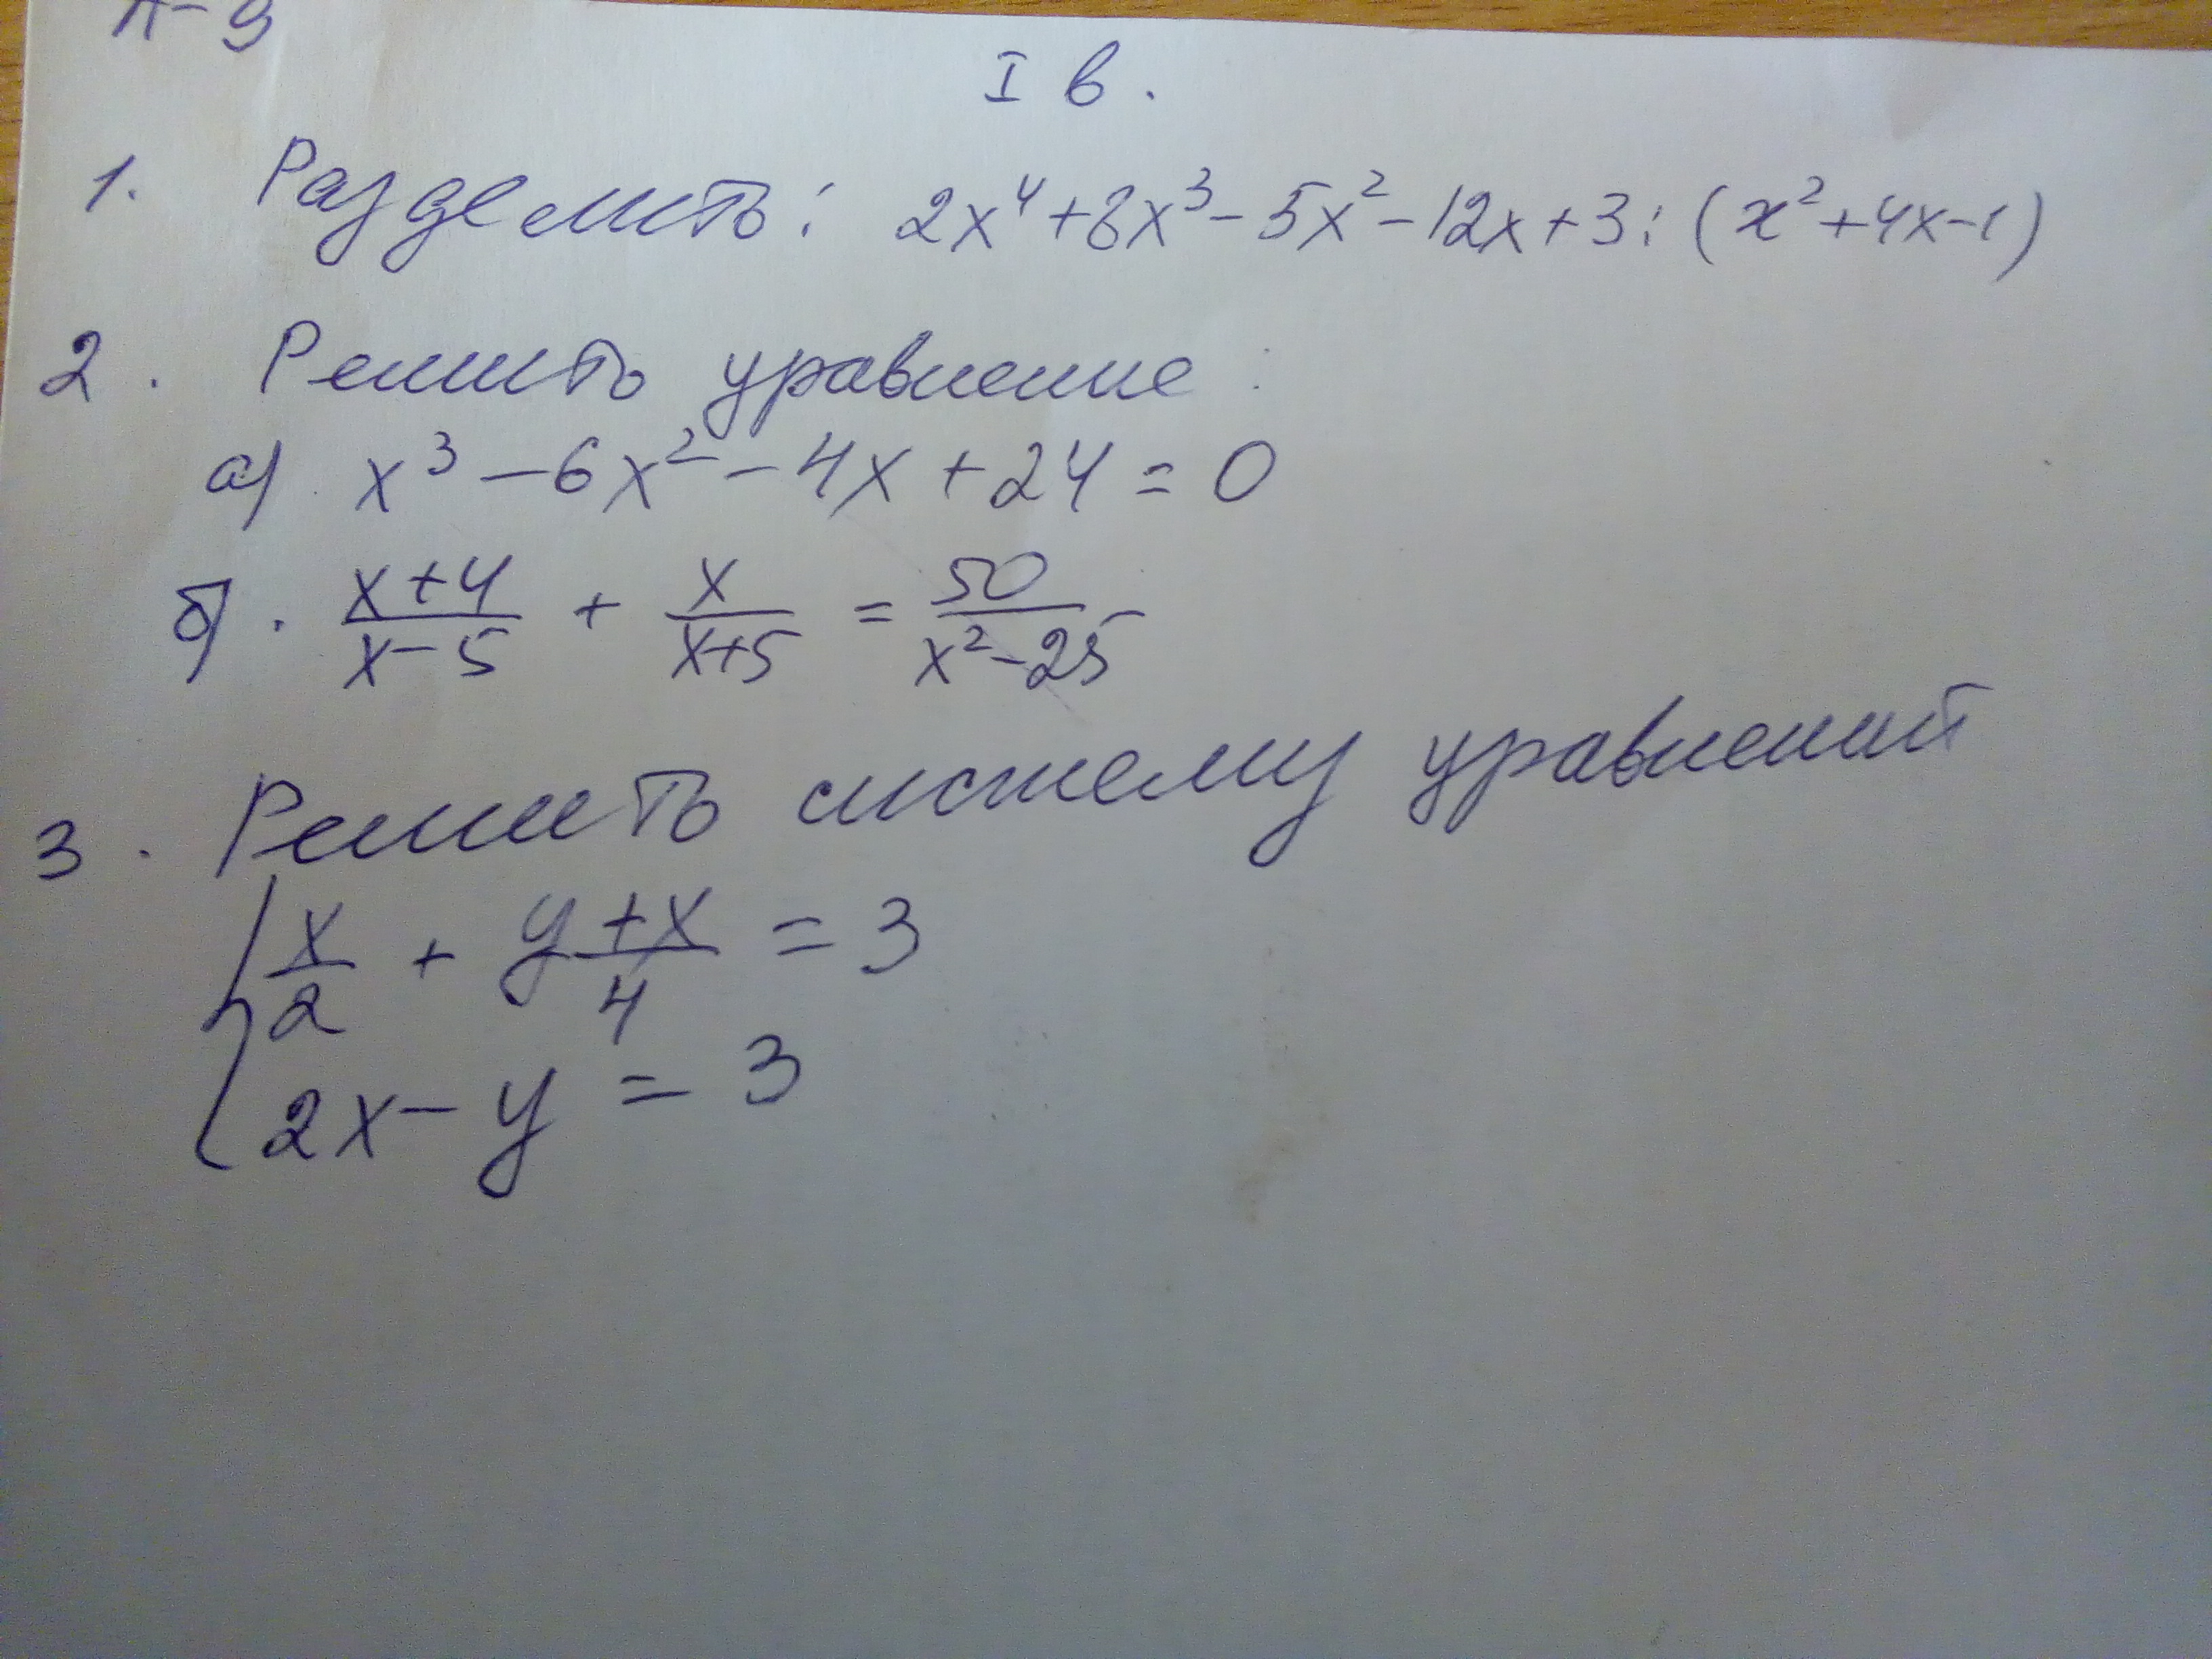 I в.
1. Разделить: 2x⁴+8x³-5x²-12x+3:(x²+4x-1)
2. Решить уравнение:
а) x³-6x²-4x+24=0
б). (x+4)/(x-5) + x/(x+5) = 50/(x²-25)
3. Решить систему уравнений
{ x/2 + (y+x)/4 = 3
2x-y = 3